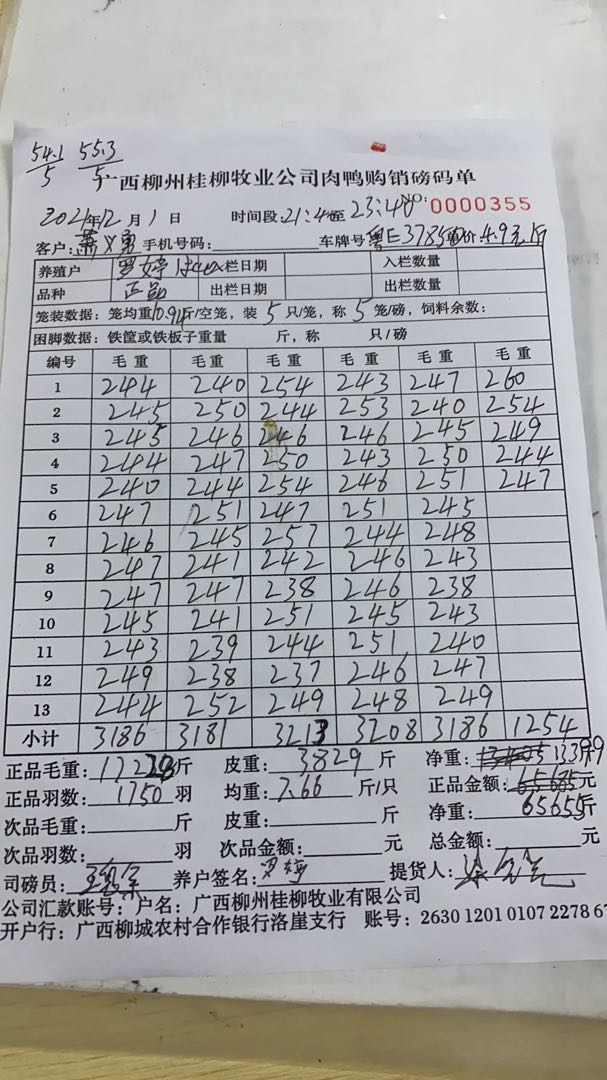 54.1 55.3
5 5
广西柳州桂柳牧业公司肉鸭购销磅码单
2021年12月1日 时间段:21:40至23:40 NO: 0000355
客户: 手机号码: 车牌号:粤E3785 单价:4.9元/斤
养殖户 罗婷 入栏日期 入栏数量
品种 正品 出栏日期 出栏数量
笼装数据:笼均重10.94斤/空笼,装5只/笼,称5笼/磅,饲料余数:
困脚数据:铁筐或铁板子重量 斤,称 只/磅
编号 毛重 毛重 毛重 毛重 毛重 毛重
1 244 240 254 243 247 260
2 245 250 244 253 240 254
3 245 246 246 246 245 249
4 244 247 250 243 250 244
5 240 244 254 246 251 247
6 247 251 247 251 245
7 246 245 257 244 248
8 247 241 242 246 243
9 247 247 238 246 238
10 245 241 251 245 243
11 243 239 244 251 240
12 249 238 237 246 247
13 244 252 249 248 249
小计 3186 3181 3213 3208 3186 1254
正品毛重:17228斤 皮重:3829斤 净重:13399斤
正品羽数:1750羽 均重:7.66斤/只 正品金额:65655
次品毛重: 斤 皮重: 斤 净重: 斤
次品羽数: 羽 次品金额: 元 总金额: 元
司磅员: 养户签名:罗婷 提货人:
公司汇款账号:户名:广西柳州桂柳牧业有限公司
开户行:广西柳城农村合作银行洛崖支行 账号:2630 1201 0107 2278 67